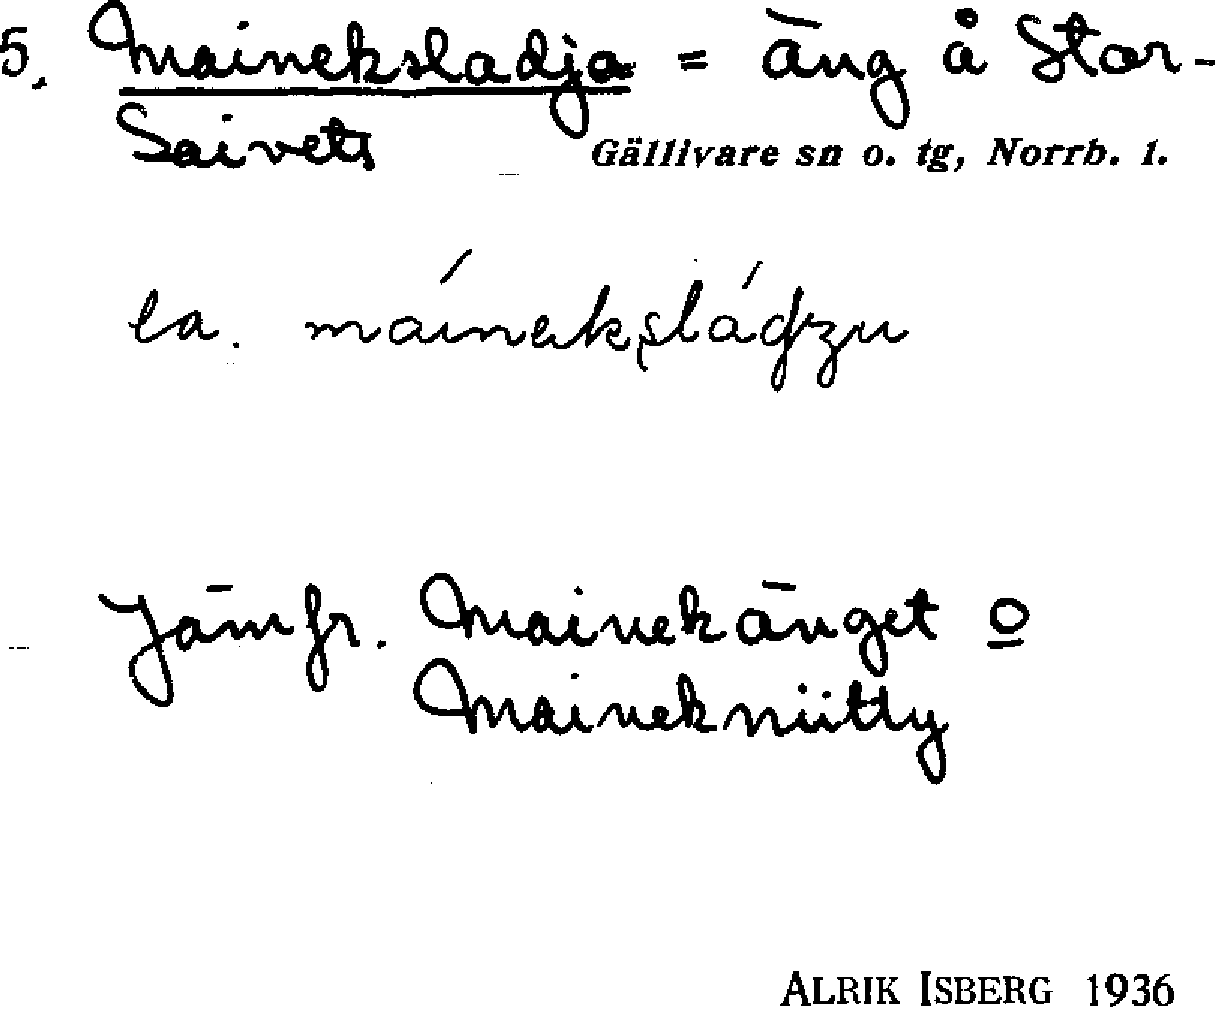 5. Maineksladja = äng å Stor-
Saivets Gällivare sn o. tg, Norrb. l.
la. máineksládzu
Jämfr. Mainekänget o
Mainekniitty
ALRIK ISBERG 1936